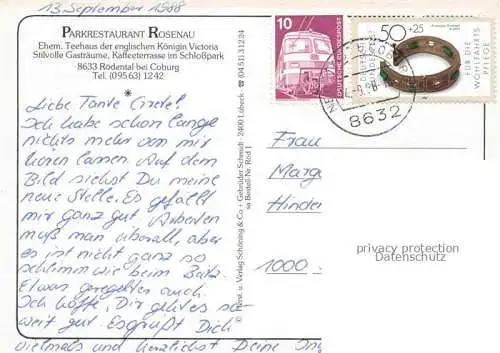 13. September 1988
PARKRESTAURANT ROSENAU
Ehem. Teehaus der englischen Königin Victoria
Stilvolle Gasträume, Kaffeeterrasse im Schloßpark
8633 Rödental bei Coburg
Tel. (09563) 1242
Liebe Tante
Ich habe schon lange
nichts mehr von mir
hören lassen. Auf dem
Bild siehst Du meine
neue Stelle. Es gefällt
mir ganz gut. Arbeiten
muß man überall, aber
es ist nicht ganz so
schlimm wie beim
Etwas geregelter auch.
Ich hoffe, Dir geht es so-
weit gut. Es grüßt Dich
vielmals und herzlichst Deine
© Herst. u. Verlag Schöning & Co + Gebrüder Schmidt · 2400 Lübeck · ☎ (04 51) 3 12 24
sa Bestell-Nr. Röd 1
10
DEUTSCHE BUNDESPOST
50
+25
FÜR DIE
WOHLFAHRTS
PFLEGE
8632
Frau
Marge
Hinder
1000
privacy protection
Datenschutz